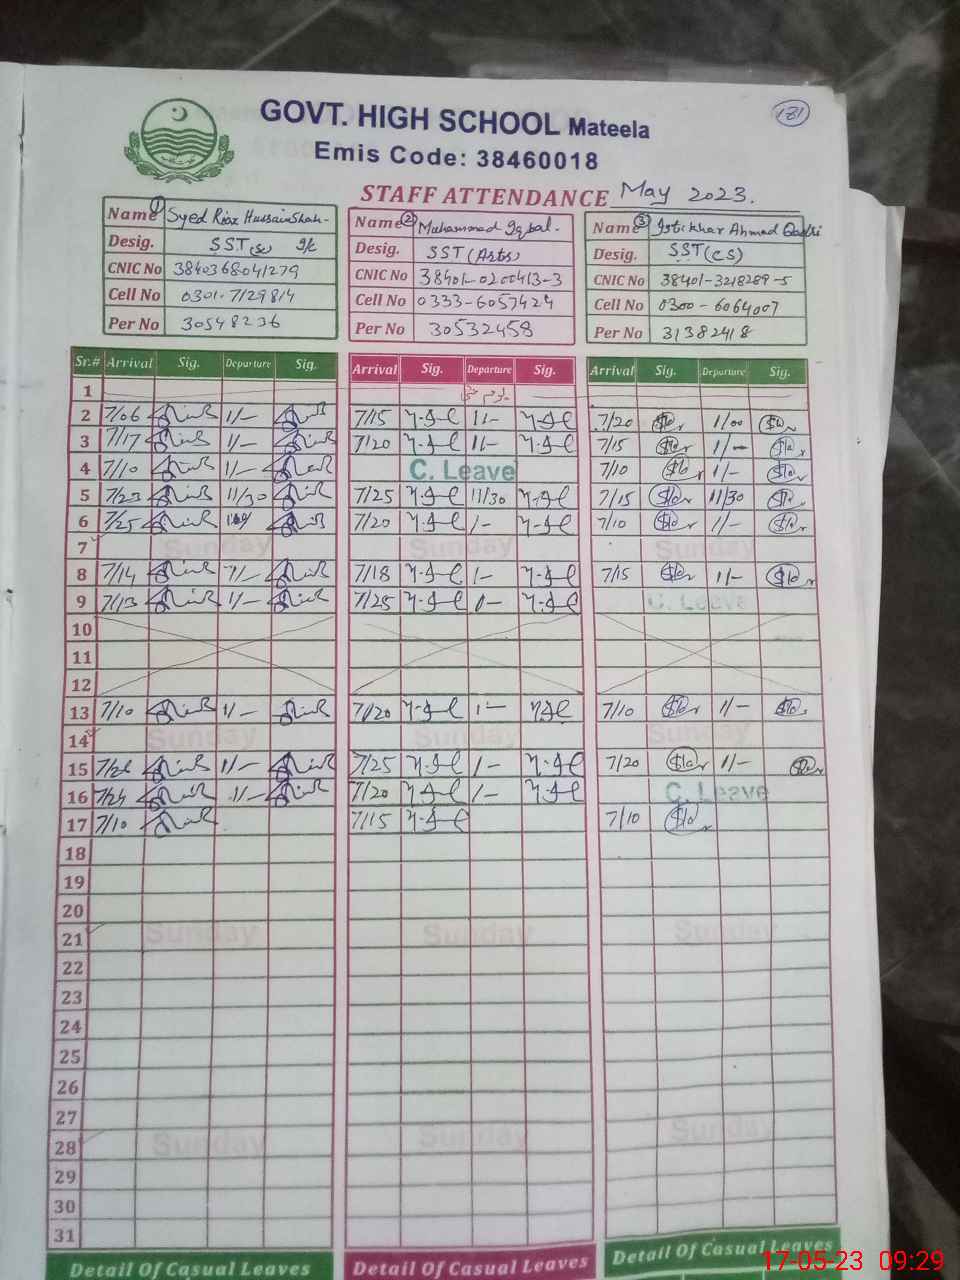 181
GOVT. HIGH SCHOOL Mateela
Emis Code: 38460018
STAFF ATTENDANCE May 2023.
Name ① Syed Riaz Hussain Shah-
Desig. SST(s) I/c
CNIC No 3840368041279
Cell No 0301-7129814
Per No 30548236
Name ② Muhammad Iqbal.
Desig. SST (Arts)
CNIC No 38401-0200413-3
Cell No 0333-6057424
Per No 30532458
Name ③ Iftikhar Ahmad Qadri
Desig. SST(CS)
CNIC No 38401-3218289-5
Cell No 0300-6064007
Per No 31382418
Sr.# Arrival Sig. Departure Sig. Arrival Sig. Departure Sig. Arrival Sig. Departure Sig.
1
2 7/06 11/- 7/15 11- 7/20 11/00
3 7/17 11/- 7/20 11- 7/15 11/-
4 7/10 11/- C. Leave 7/10 11/-
5 7/23 11/30 7/25 11/30 7/15 11/30
6 7/25 7/20 1/- 7/10 11/-
7 Sunday Sunday Sunday
8 7/14 7/18 1/- 7/15 11/-
9 7/13 11/- 7/25 C. Leave
10
11
12
13 7/10 11/- 7/20 7/10 11/-
14 Sunday Sunday Sunday
15 11/- 7/25 1/- 7/20 11/-
16 7/24 7/20 1/- C. Leave
17 7/10 7/15 7/10
18
19
20
21 Sunday Sunday Sunday
22
23
24
25
26
27
28 Sunday Sunday Sunday
29
30
31
Detail Of Casual Leaves Detail Of Casual Leaves Detail Of Casual Leaves
17-05-23 09:29